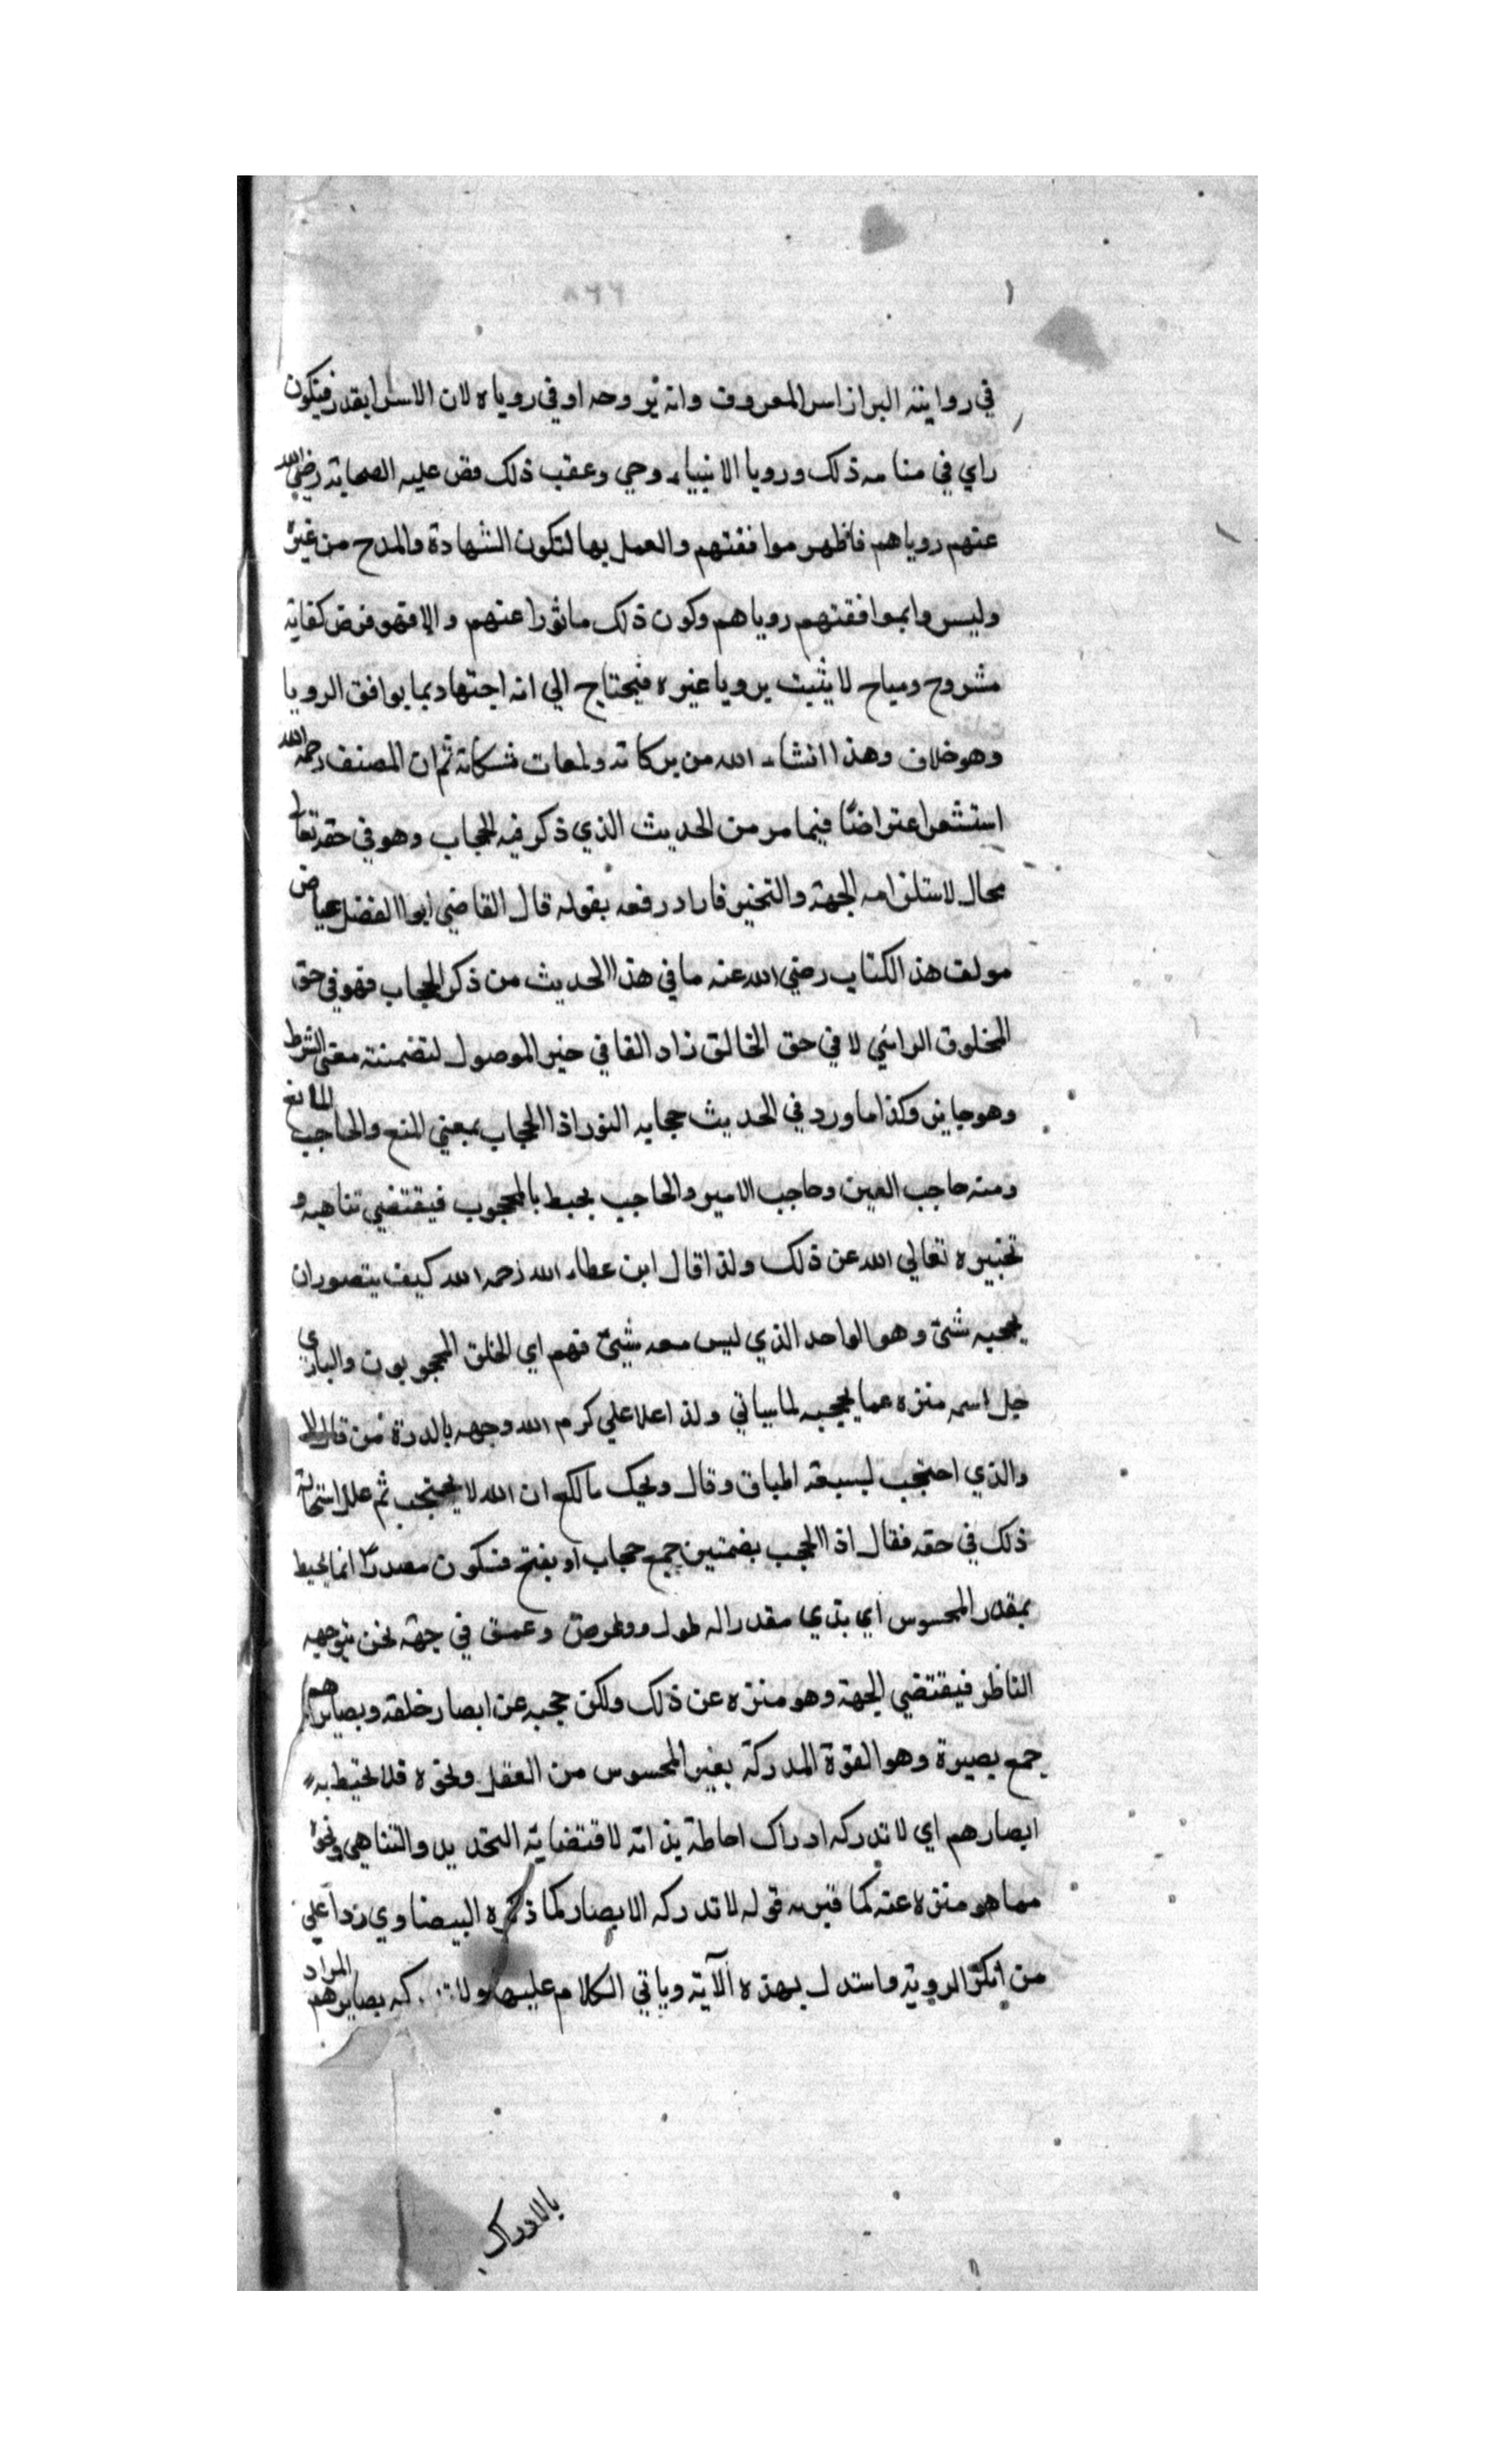 ٨٦٦
في رواية البزاز اسر المعروف وانه بروحه او في روياه لان الاسرا بقدر فيكون
راي في منامه ذلك ورويا الانبياء وحي وعقب ذلك قص عليه الصحابة رضي الله
عنهم روياهم فاظهر موافقتهم والعمل بها لتكون الشهادة والمدح من غيره
وليس وا بموافقتهم روياهم وكون ذلك ماثورا عنهم والا فهو فرض كفاية
مشروح ومباح لا يثبت برويا غيره فيحتاج الي انه اجتهاد بما يوافق الرويا
وهو خلاف وهذا انشاء الله من بركاته ولمعات مشكاته ثم ان المصنف رحمه الله
استشعر اعتراضًا فيما مر من الحديث الذي ذكر فيه الحجاب وهو في حقه تعالي
محال لاستلزامه الجهة والتحيز فاراد رفعه بقوله قال القاضي ابوا الفضل عياض
مولف هذ الكتاب رضي الله عنه ما في هذا الحديث من ذكر الحجاب فهو في حق
المخلوق الرائي لا في حق الخالق زاد الفا في حيز الموصول لتضمنته معني الشرط
وهو جايز وكذا ما ورد في الحديث حجابه النور اذا الحجاب بمعني المنع والحاجب المانع
ومنه حاجب العين وحاجب الامير والحاجب يحيط بالمحجوب فيقتضي تناهيه و
تحيزه تعالي الله عن ذلك ولذا قال ابن عطاء الله رحمه الله كيف يتصور ان
يحجبه شئ وهو الواحد الذي ليس معه شيئ فهم اي الخلق المحجوبون والباري
جل اسمه منزه عما يحجبه لما سياتي ولذا علا علي كرم الله وجهه بالدرة من قال لا
والذي احتجب لسبعة اطباق وقال ويحك يا لكع ان الله لا يحتجب ثم علل استحالة
ذلك في حقه فقال اذا الحجب بضمتين جمع حجاب او بفتح فسكون مصدرًا انما يحيط
بمقدر المحسوس اي بذي مقدر له طول وعرض وعمق في جهة نحن يتوجهه
الناظر فيقتضي الجهة وهو منزه عن ذلك ولكن حجبه عن ابصار خلقه وبصايرهم
جمع بصيرة وهو القوة المدركة بغير المحسوس من العقل ونحوه فلا تحيط به
ابصارهم اي لا تدركه ادراك احاطة بذاته لاقتضايه التحديد والتناهي ونحوه
مما هو منزه عنه كما فسر به قوله لا تدركه الابصار كما ذكره البيضاوي ردا علي
من انكر الروية واستدل بهذه الآية وياتي الكلام عليها ولا كه بصايرهم المراد
بالادراك